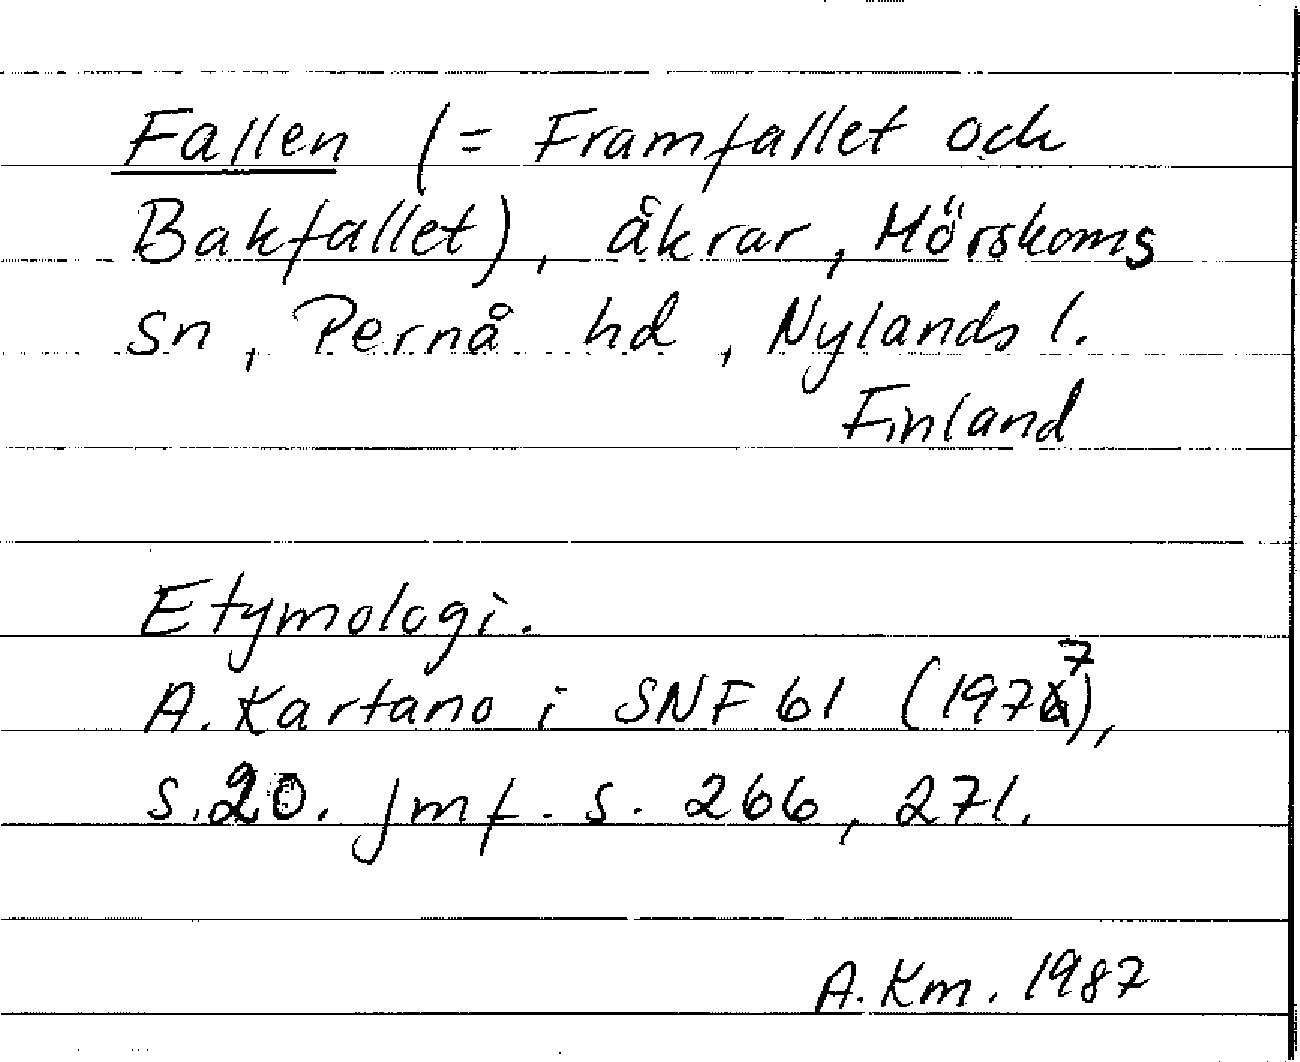 Fallen (= Framfallet och
Bakfallet), åkrar, Mörskoms
sn, Pernå hd, Nylands l.
Finland
Etymologi.
A. Kartano i SNF 61 (1977),
s. 20. Jmf. s. 266, 271.
A. Km. 1987